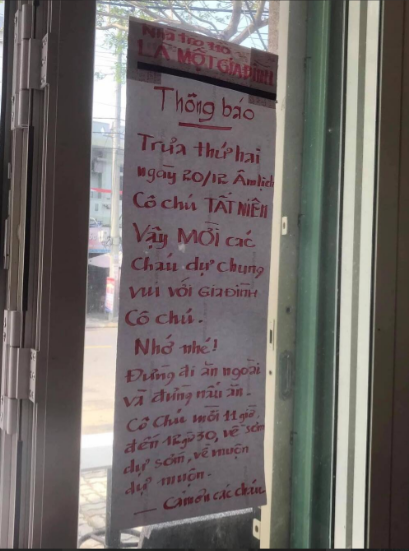 Nhà trọ
LÀ MỘT GIA ĐÌNH
Thông báo
Trưa thứ hai
ngày 20/12 Âm lịch
Cô chú TẤT NIÊN
Vậy MỜI các
Cháu dự chung
vui với GIA ĐÌNH
Cô chú.
Nhớ nhé!
Đừng đi ăn ngoài
và đừng nấu ăn.
Cô Chú mời 11 giờ
đến 12g30, về sớm
dự sớm, về muộn
dự muộn.
— Cảm ơn các cháu